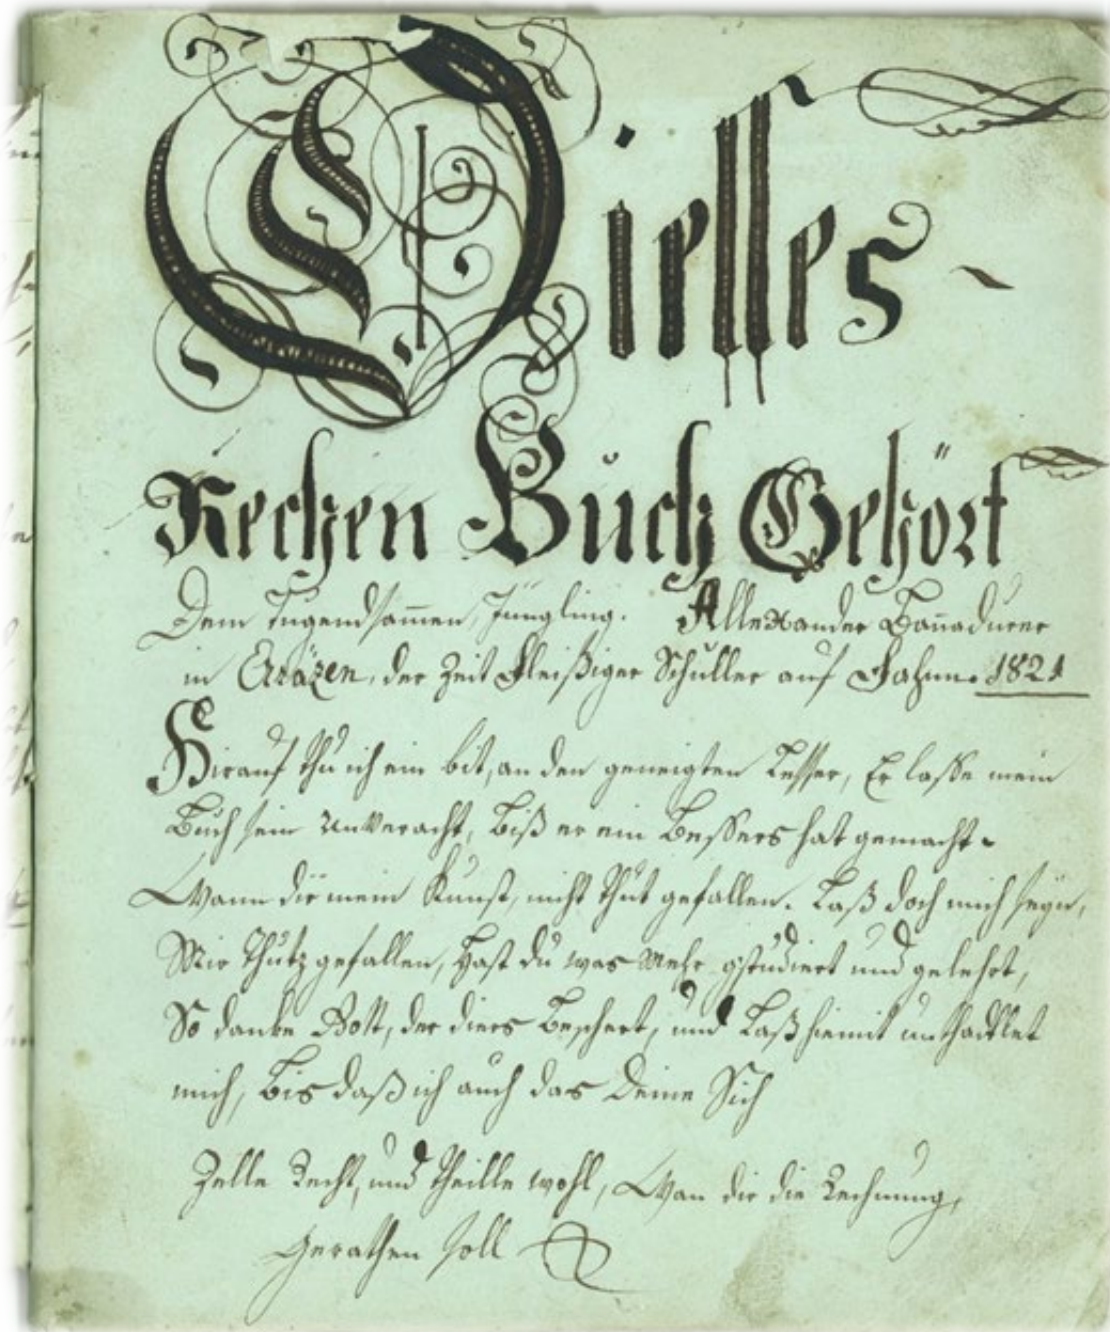 Dieſes
Rechen Buch Gehört
Dem Tugendſamen, Jüngling. Allexander Bañadurer
in Aräzen, der Zeit Fleißiger Schuller auf Fahnn. 1821
Hirauf thu ich ein bit, an den geneigten Leſſer, Er laſſe mein
Buch ſein UnVeracht, Biß er ein Beſſers hat gemacht.
Wann dir mein Kunſt, nicht thut gefallen. Laß doch mich ſeyn,
Mir thutz gefallen, Haſt du was Mehr gſtudiert und gelehrt,
So danke Gott, der diers Beſchert, und Laß hiemit unthadlet
mich, Bis daß ich auch das Deine Sich
Zelle Recht, und Theille wohl, Wan dir die Rechnung,
Gerathen ſoll